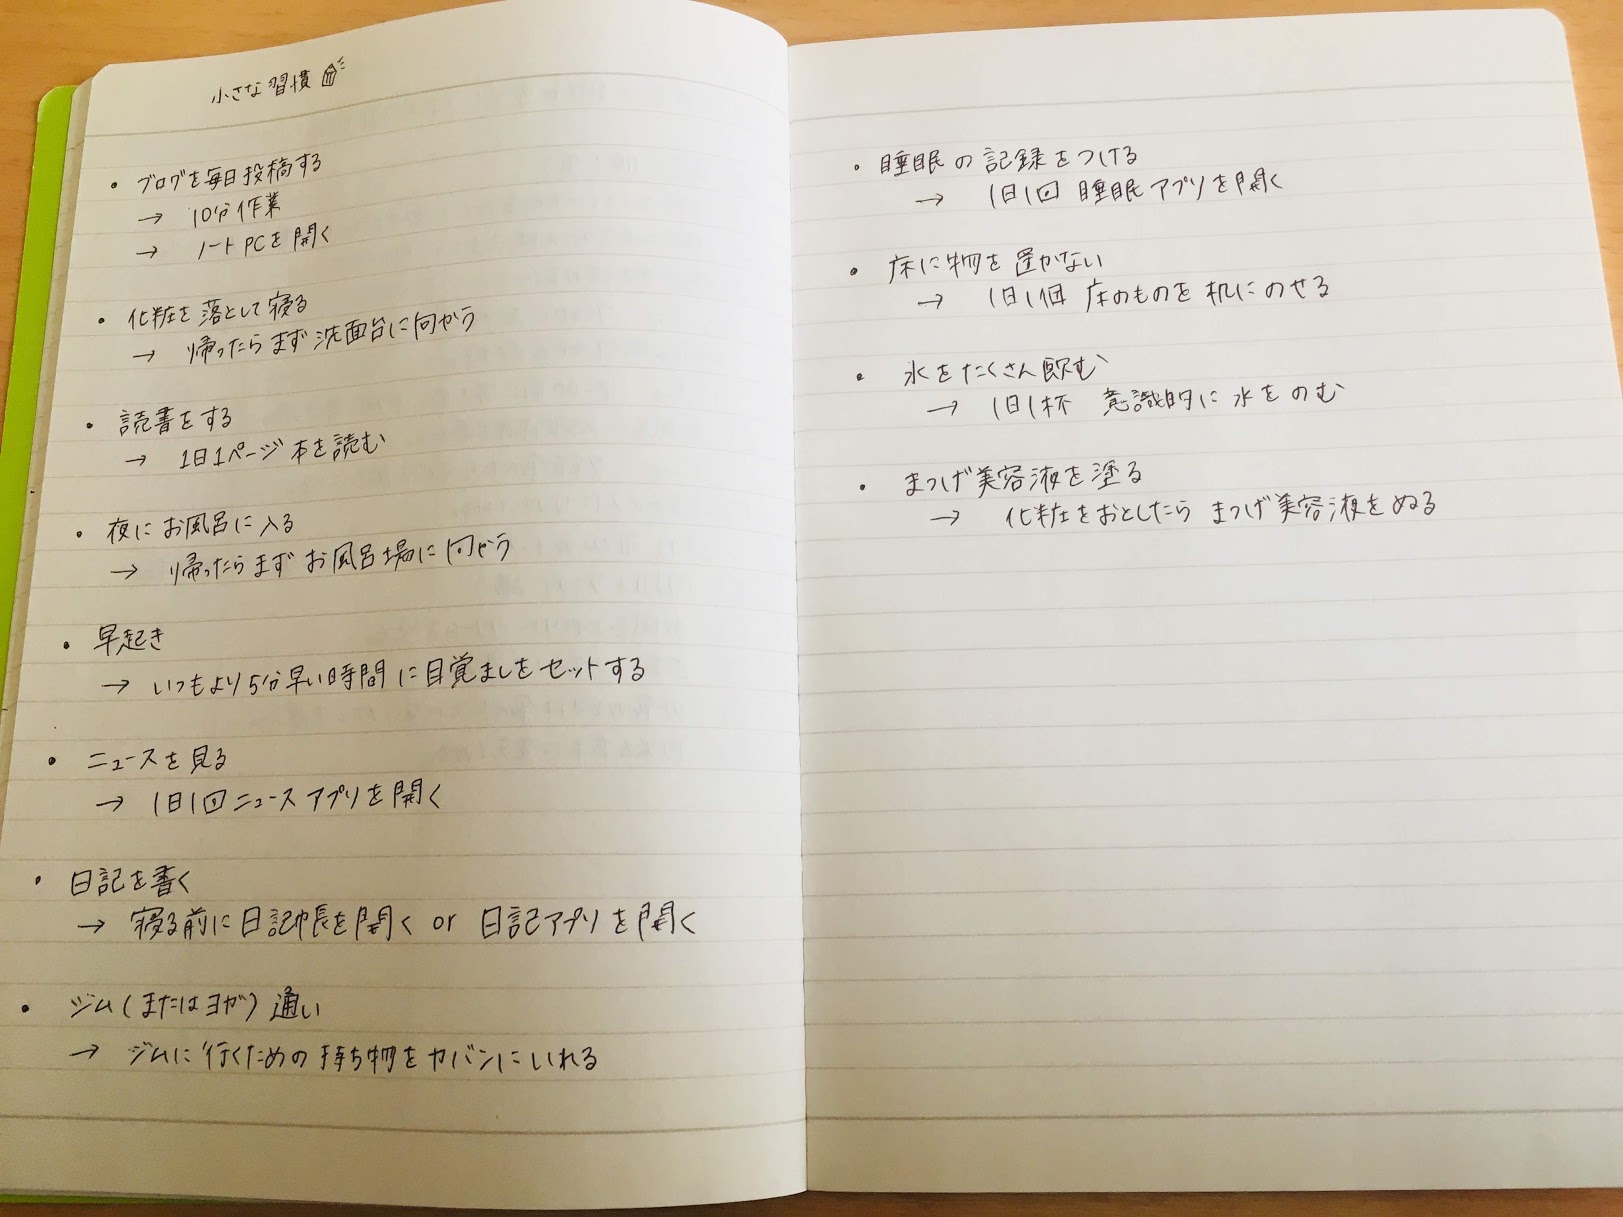 小さな習慣
・ブログを毎日投稿する
→ 10分作業
→ ノートPCを開く
・化粧を落として寝る
→ 帰ったらまず洗面台に向かう
・読書をする
→ 1日1ページ本を読む
・夜にお風呂に入る
→ 帰ったらまずお風呂場に向かう
・早起き
→ いつもより5分早い時間に目覚ましをセットする
・ニュースを見る
→ 1日1回ニュースアプリを開く
・日記を書く
→ 寝る前に日記帳を開く or 日記アプリを開く
・ジム(またはヨガ)通い
→ ジムに行くための持ち物をカバンにいれる
・睡眠の記録をつける
→ 1日1回 睡眠アプリを開く
・床に物を置かない
→ 1日1個 床のものを机にのせる
・水をたくさん飲む
→ 1日1杯 意識的に水をのむ
・まつげ美容液を塗る
→ 化粧をおとしたら まつげ美容液をぬる